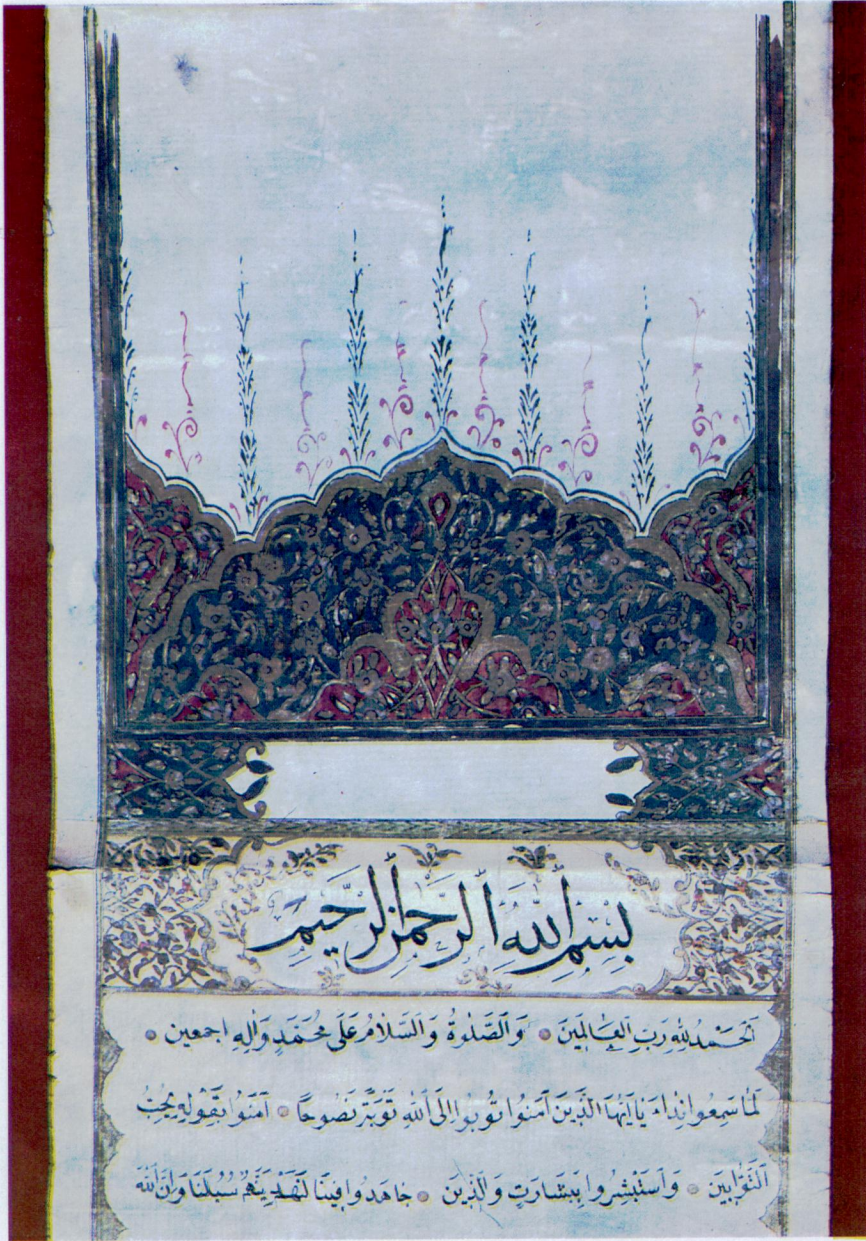 بِسْمِ اللّٰهِ الرَّحْمٰنِ الرَّحِيمِ
اَلْحَمْدُ لِلّٰهِ رَبِّ الْعَالَمِينَ ۞ وَالصَّلٰوةُ وَالسَّلَامُ عَلٰى مُحَمَّدٍ وَاٰلِهِ اجمعين ۞
لَمَّا سَمِعُوا نِدَاءَ يَا اَيُّهَا الَّذِينَ آمَنُوا تُوبُوا اِلَى اللّٰهِ تَوْبَةً نَصُوحًا ۞ آمَنُوا بِقَوْلِهِ يُحِبُّ
التَّوَّابِينَ ۞ وَاسْتَبْشِرُوا بِبَشَارَتِ وَالَّذِينَ ۞ جَاهَدُوا فِينَا لَنَهْدِيَنَّهُمْ سُبُلَنَا وَاِنَّ اللّٰهَ